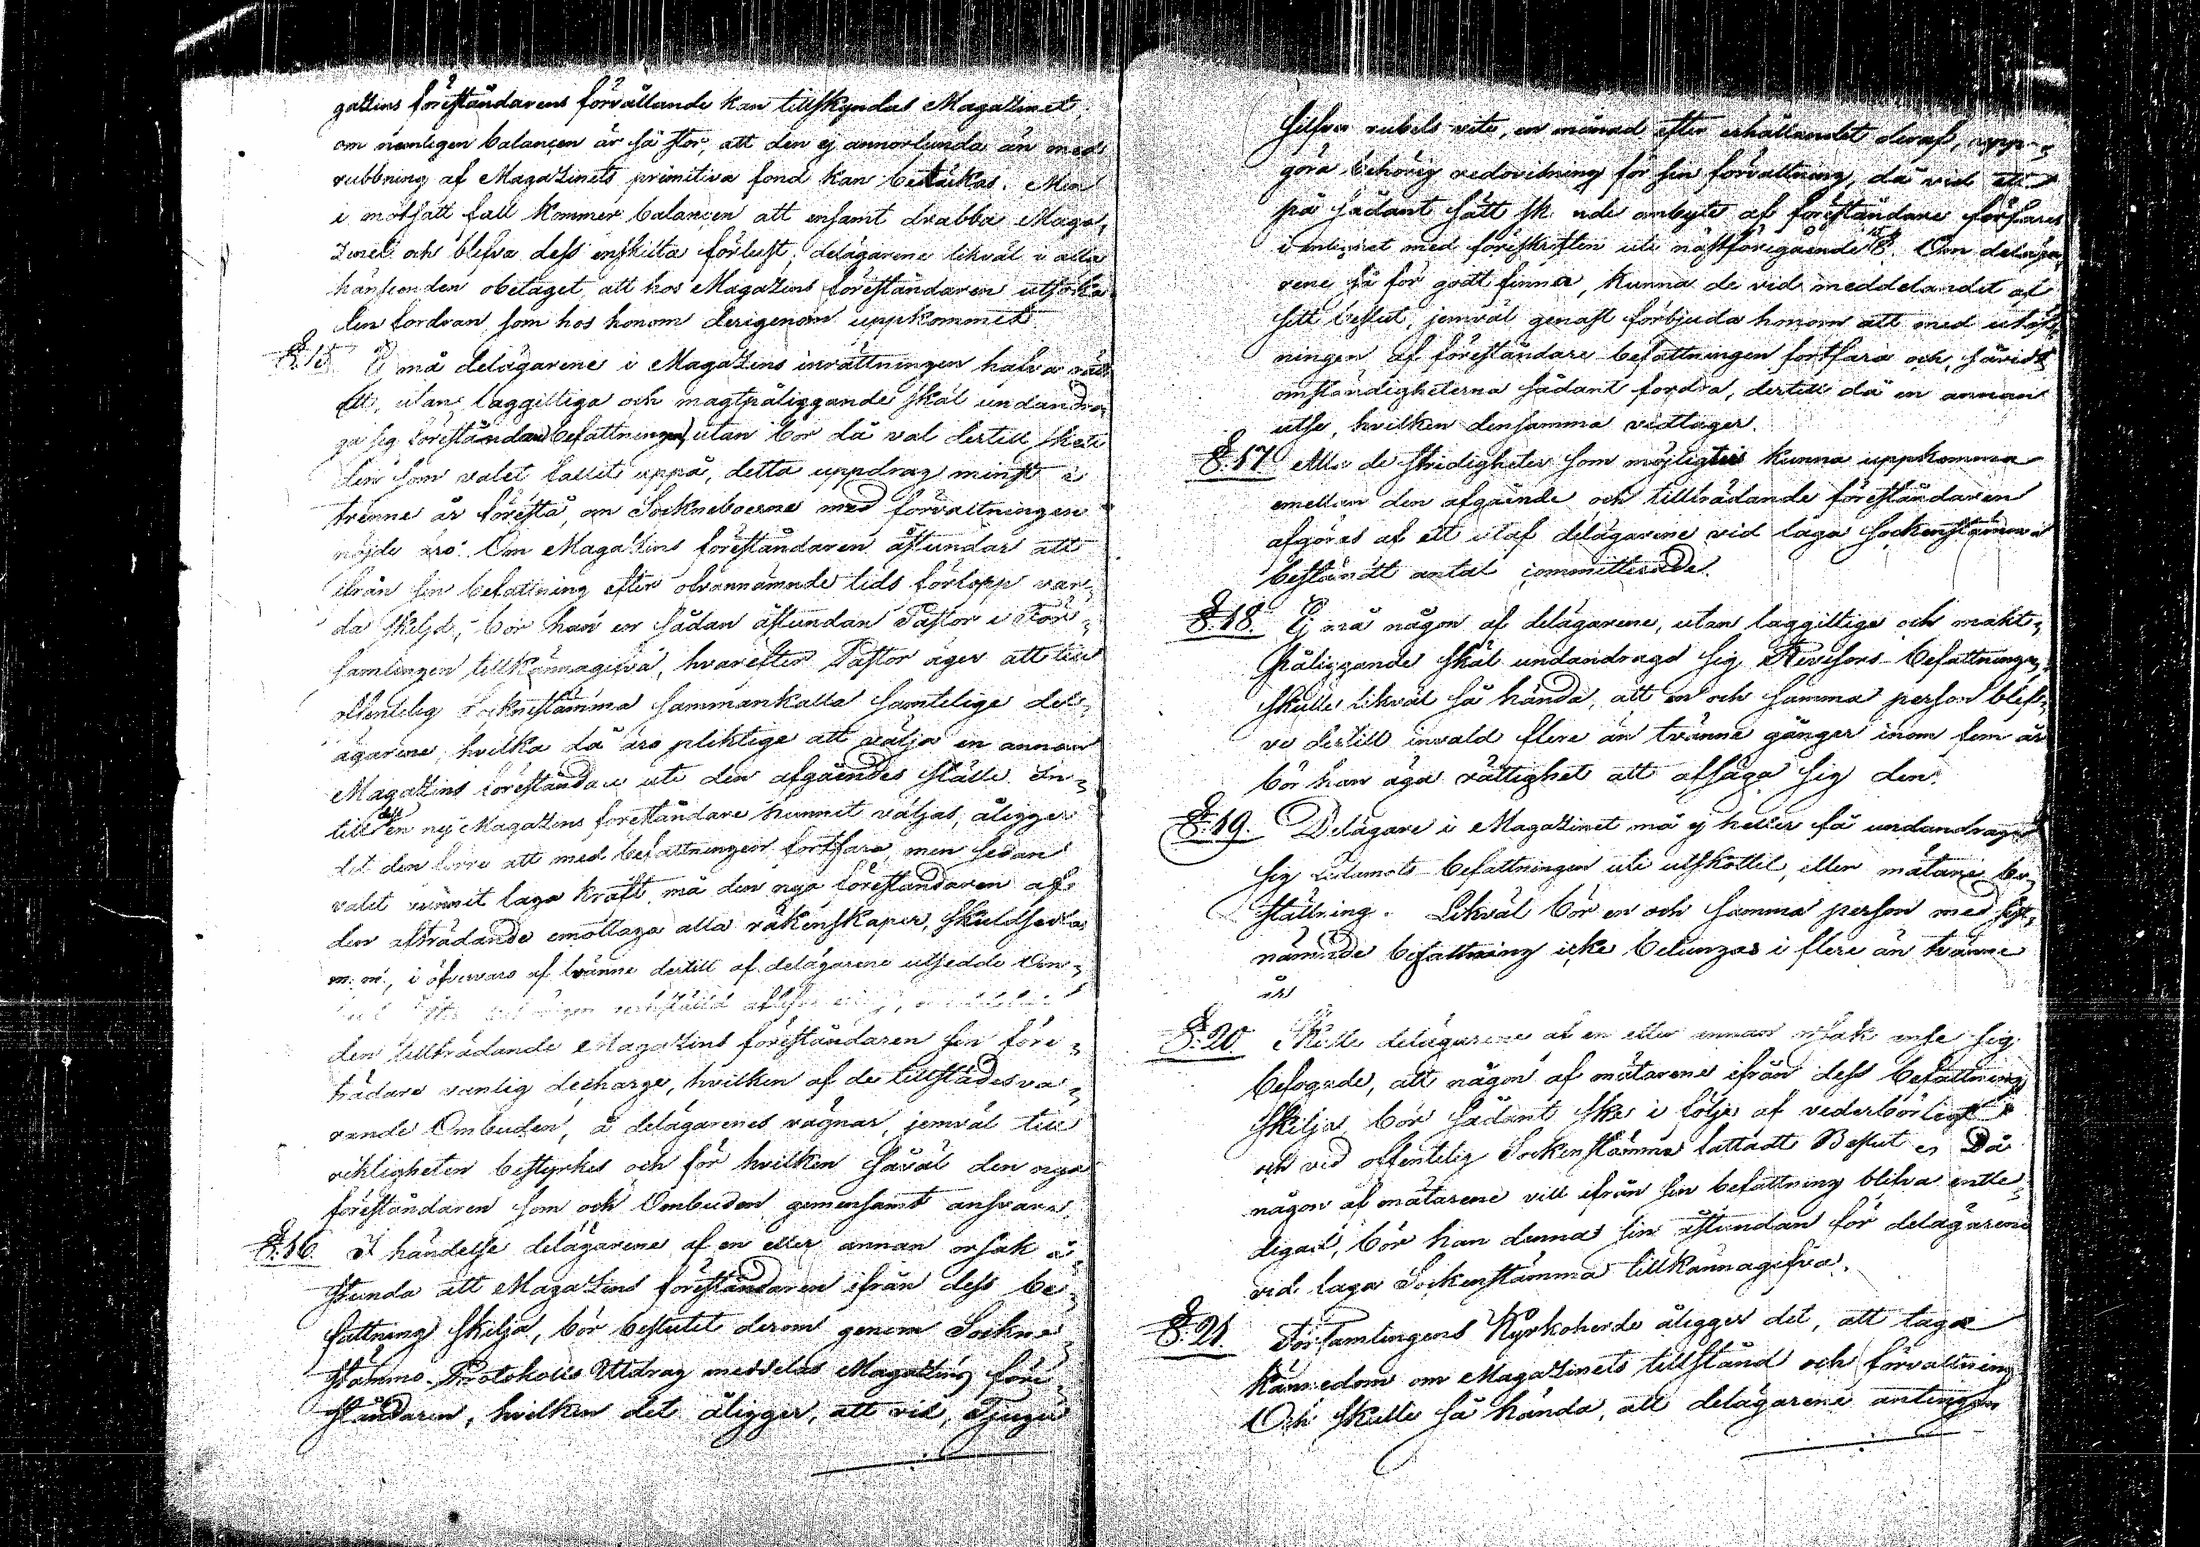 gazins föreståndarens förvållande kan tillskyndas Magazinet,
om nemligen balançen är så stor, att den ej annorlunda än med
rubbning af Magazinets primitiva fond kan betäckas. Men
i motsatt fall kommer balançen att ensamt drabba Maga,
zinet och blifva dess enskilta förlust; delägarene likväl i alla
hänseenden obetaget att hos Magazins föreståndaren utsöka
den fordran som hos honom derigenom uppkommit
§. 15. Ej må delägarene i Magazins inrättningen hafva rätt
att, utan laggiltiga och magtpåliggande skäl undandra,
ga sig föreståndare befattningen, utan bör då val dertill skett
den som valet fallit uppå, detta uppdrag minst i
trenne år förestå, om Sockneboerne med förvaltningen
nöjde äro. Om Magazins föreståndaren åstundar att
ifrån sin befattning efter ofvannämnde tids förlopp var-
da skiljd, bör han en sådan åstundan Pastor i För-
samlingen tillkännagifva, hvarefter Pastor äger att till
offentelig Socknestämma sammankalla samtelige del-
ägarene, hvilka då äro pliktige att välja en annan
Magazins föreståndare uti den afgåendes ställe. In-
till dess en ny Magazins föreståndare hunnit väljas, åligger
det den förre att med befattningen fortfara, men sedan
valet vunnit laga kraft, må den nya föreståndaren af
den afträdande emottaga alla räkenskaper, skuldsedlar
m: m:, i öfvervaro af tvänne dertill af delägarene utsedde Om-
den tillträdande Magazins föreståndaren sin före-
trädare vanlig decharge, hvilken af de tillstädesva-
rande Ombuden, å delägarenes vägnar, jemväl till
riktigheten bestyrkes och för hvilken såväl den nya
föreståndaren som och Ombuden gemensamt ansvara.
§. 16. I händelse delägarene af en eller annan orsak å-
stunda att Magazins föreståndaren ifrån dess be-
fattning skilja, bör beslutet derom genom Sockne
stämmo Protokolls Utdrag meddelas Magazins före
ståndaren, hvilken det åligger, att vid, Tjugu
Silfver rubels vite, en månad efter erhållandet deraf, upp-
göra behörig redovisning för sin förvaltning, då vid ett
på sådant sätt skende ombyte af föreståndare förfares
i enlighet med föreskriften uti nästföregående 15 §. Om deläga,
rene så för godt finna, kunna de vid meddelandet af
sitt beslut, jemväl genast förbjuda honom att med utöf-
ningen af föreståndare befattningen fortfara och, såvidt
omständigheterna sådant fordra, dertill då en annan
utse, hvilken densamma vidtager.
§. 17. Alla de stridigheter som möjligtvis kunna uppkomma
emellan den afgående och tillträdande föreståndaren
afgöras af ett utaf delägarene vid laga sockenstämma
bestämdt antal committerade.
§. 18. Ej må någon af delägarene, utan laggiltige och makt-
påliggande skäl undandraga sig Revisors-befattningen,
skulle likväl så hända, att en och samma person blef-
ve dertill invald flere än tvänne gånger inom fem år
bör han äga rättighet att afsäga sig den.
§. 19. Delägare i Magazinet må ej heller få undandraga
sig Ledamots befattningen uti utskottet, eller mätare be-
ställning. Likväl bör en och samma person med sist-
nämnde befattning icke betungas i flere än tvänne
års
§. 20. Skulle delägarene af en eller annan orsak anse sig
befogade, att någon af mätarene ifrån dess befattning
skilja, bör sådant ske i följe af vederbörligt
och vid offentelig Sockenstämma fattadt Beslut. Då
någon af mätarene vill ifrån sin befattning blifva entle-
digad, bör han denna sin åstundan för delägarene
vid laga Sockenstämma tillkännagifva.
§. 21. Församlingens Kyrkoherde åligger det, att taga
kännedom om Magazinets tillstånd och förvaltning
Och skulle så hända, att delägarene antingen